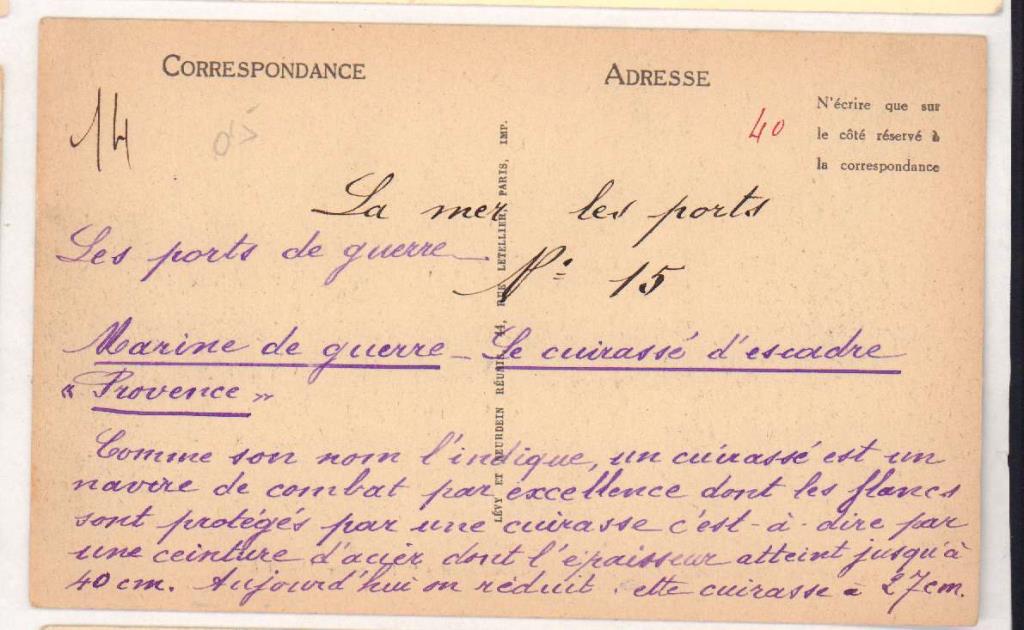 CORRESPONDANCE
ADRESSE
N'écrire que sur
le côté réservé à
la correspondance
14
40
La mer les ports
Les ports de guerre
N° 15
Marine de guerre - Le cuirassé d'escadre
" Provence "
Comme son nom l'indique, un cuirassé est un
navire de combat par excellence dont les flancs
sont protégés par une cuirasse c'est-à-dire par
une ceinture d'acier dont l'épaisseur atteint jusqu'à
40 cm. Aujourd'hui on réduit cette cuirasse à 27cm.
LÉVY ET NEURDEIN RÉUNIS, 44, RUE LETELLIER, PARIS, IMP.